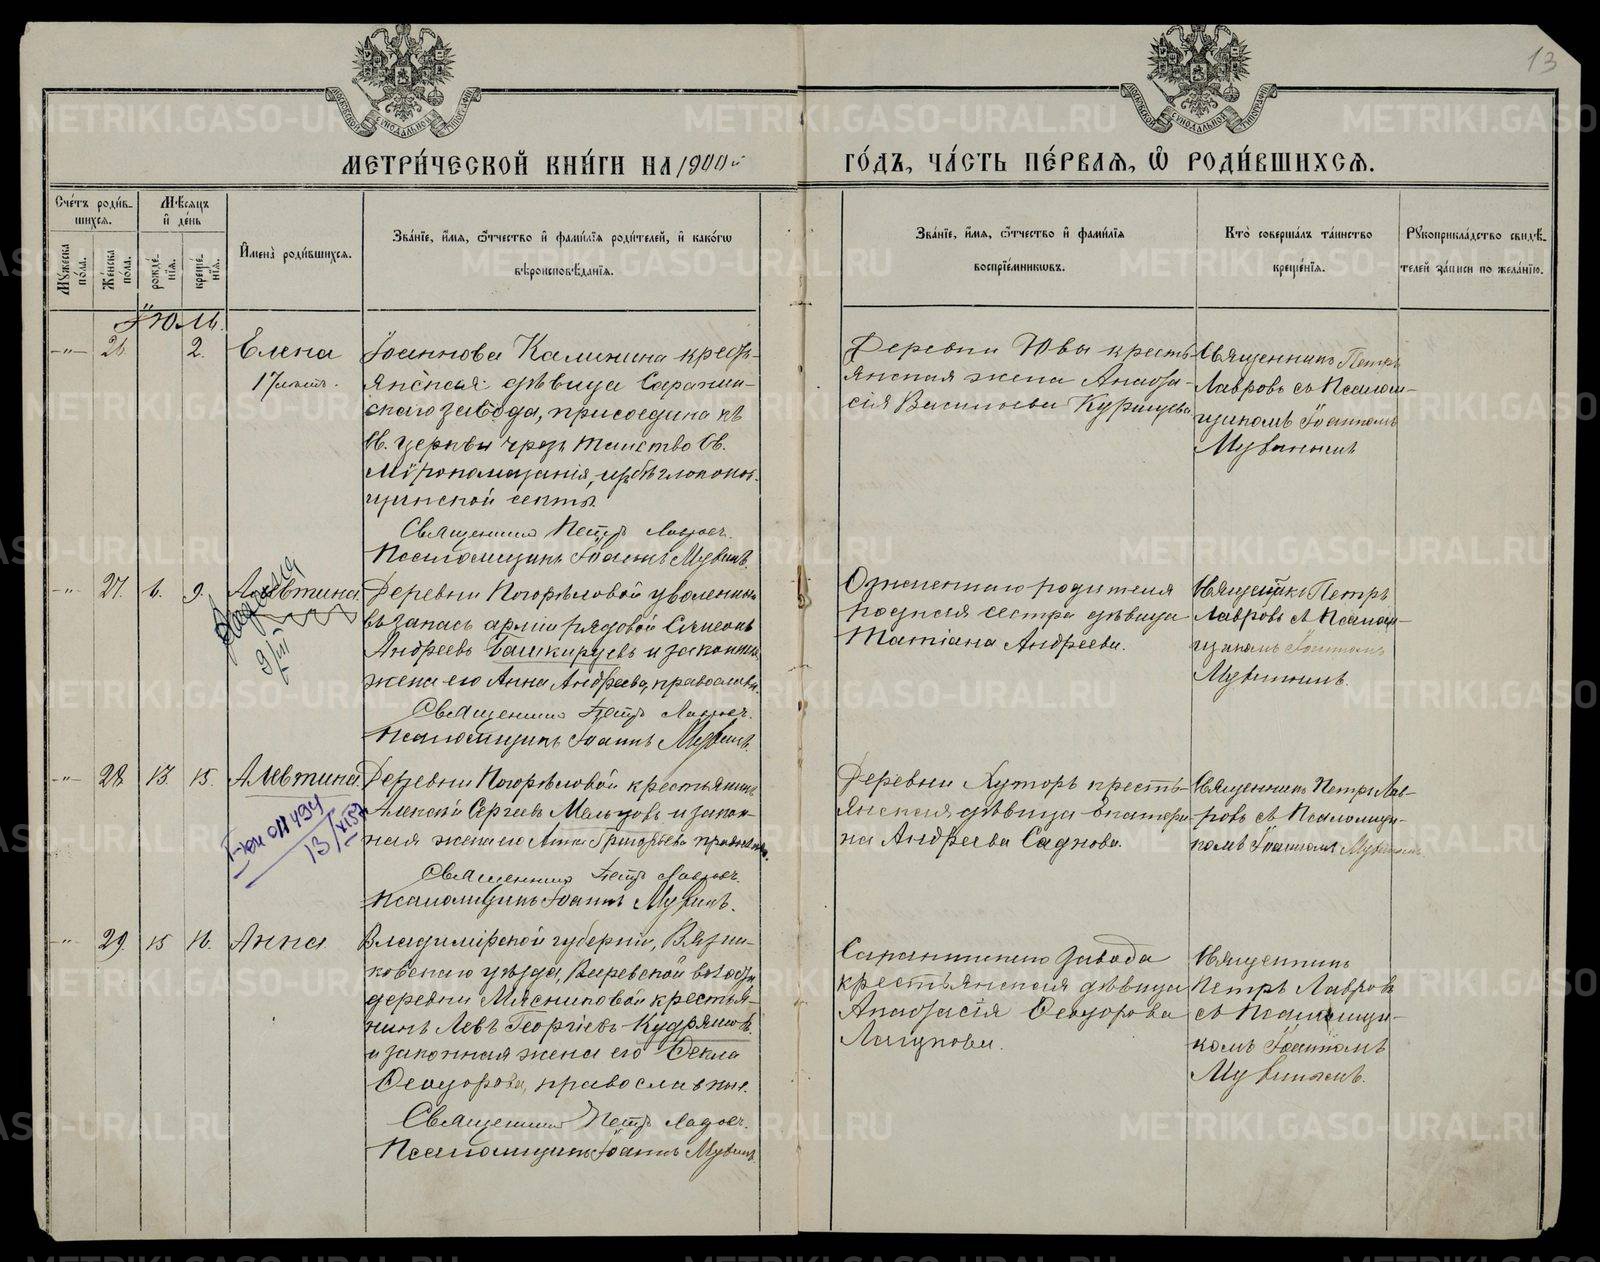 13
МЕТРИ́ЧЕСКОЙ КНИ́ГИ НА 1900й ГО́ДЪ, ЧА́СТЬ ПЕ́РВАѦ, Ѡ РОДИ́ВШИХСѦ.
Сче́тъ роди́в-
шихся.
Мѣ́сяцъ
и̂ де́нь
Мꙋ́жеска по́ла.
Же́нска по́ла.
рожде́нїѧ.
креще́нїѧ.
И̂мена̀ роди́вшихсѧ.
Зва́нїе, и̂́мѧ, о̂́тчество и̂ фами́лїѧ роди́телей, и̂ како́гѡ
вѣроисповѣ́данїѧ.
Зва́нїе, и̂́мѧ, о̂́тчество и̂ фами́лїѧ
воспрїе́мникѡвъ.
Кто̀ соверша́лъ та́инство
креще́нїѧ.
Рꙋкоприкла́дство свидѣ́-
телей за́писи по жела́нїю.
Іюль.
-"- 26 2. Елена
17 лѣтъ.
Іоаннова Калинина кресть-
янская дѣвица Саранин-
скаго завода, присоедина къ
Св. церкви чрезъ таинство Св.
Мѵропомазанія, изъ бѣглопопов-
щинской секты.
Священникъ Петръ Лавровъ.
Псаломщикъ Іоаннъ Мувинъ.
Деревни Ювы кресть-
янская жена Анаста-
сія Васильева
Священникъ Петръ
Лавровъ съ Псалом-
щикомъ Іоанномъ
Мувинымъ
-"- 27. 6. 9. Алевтина.
9/III
Деревни Погорѣловой уволенный
въ запасъ арміи рядовой Симеонъ
Андреевъ Башкирцевъ и законная
жена его Анна Андреева, православн.
Священникъ Петръ Лавровъ.
Псаломщикъ Іоаннъ Мувинъ.
Означеннаго родителя
родная сестра дѣвица
Татіана Андреева.
Священникъ Петръ
Лавровъ съ Псалом-
щикомъ Іоанномъ
Мувинымъ.
-"- 28. 13. 15. Алевтина.
13/XI57
Деревни Погорѣловой крестьянинъ
Алексѣй Сергѣевъ Мальцовъ и закон-
ная жена его Анна Григорьева православн.
Священникъ Петръ Лавровъ.
Псаломщикъ Іоаннъ Мувинъ.
Деревни Хуторъ кресть-
янская дѣвица Екатери-
на Андреева Садкова.
Священникъ Петръ Лав-
ровъ съ Псаломщи-
комъ Іоанномъ Мувинымъ
-"- 29. 15 16. Анна
Владимірской губерніи, Вязни-
ковскаго уѣзда, волости
деревни Мясниковой крестья-
нинъ Левъ Георгіевъ Кудряшовъ
и законная жена его Ѳекла
Ѳеодорова, православные.
Священникъ Петръ Лавровъ.
Псаломщикъ Іоаннъ Мувинъ
Саранинскаго завода
крестьянская дѣвица
Анастасія Ѳеодорова
Священникъ
Петръ Лавровъ
съ Псаломщи-
комъ Іоанномъ
Мувинымъ.
METRIKI.GASO-URAL.RU